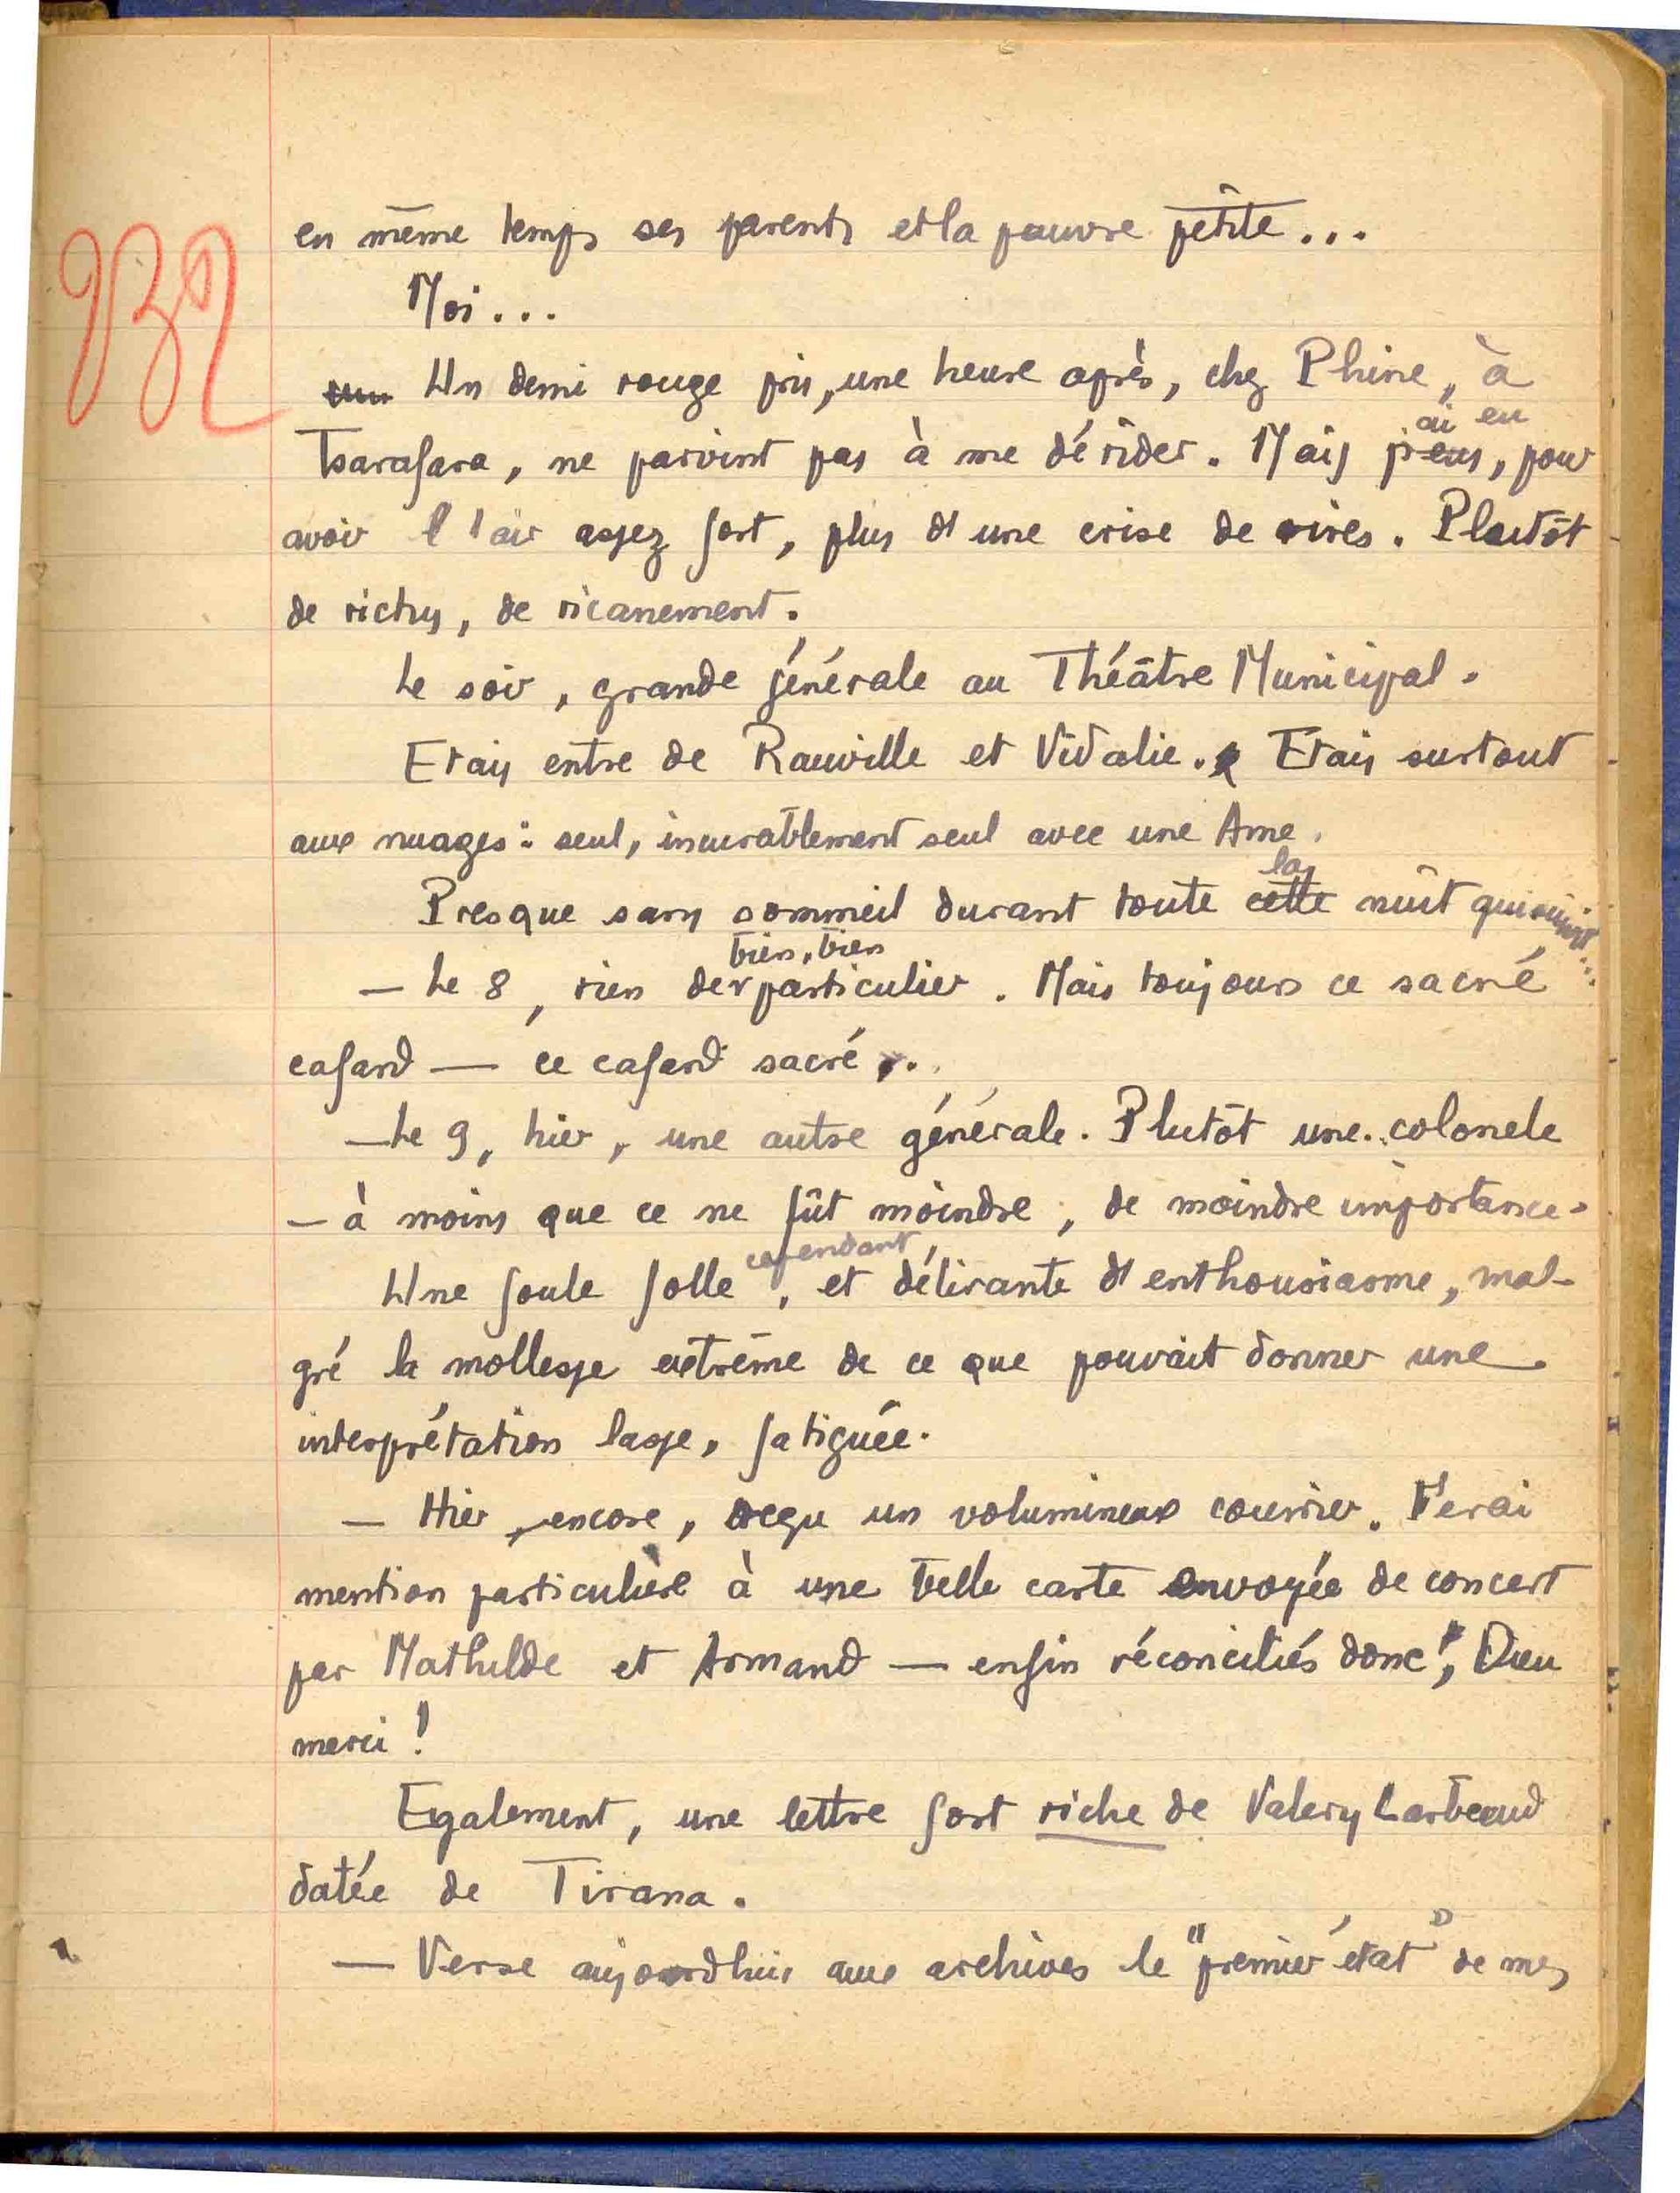 en même temps ses parents et la pauvre petite...
932
Moi...
Un demi rouge pris, une heure après, chez Phine, à
ai eu
Tsarafara, ne parvint pas à me dérider. Mais j'eus, pour
avoir l'air assez fort, plus d'une crise de rires. Plutôt
de rictus, de ricanement.
Le soir, grande générale au Théâtre Municipal.
Etais entre de Rauville et Vidalie. Etais surtout
aux nuages : seul, incurablement seul avec une Ame.
la
Presque sans sommeil durant toute cette nuit qui suivit...
bien, bien
- Le 8, rien de particulier. Mais toujours ce sacré
cafard — ce cafard sacré...
- Le 9, hier, une autre générale. Plutôt une colonele
- à moins que ce ne fût moindre, de moindre importance.
cependant
Une foule folle, et délirante d'enthousiasme, mal-
gré la mollesse extrême de ce que pouvait donner une
interprétation lasse, fatiguée.
— Hier encore, reçu un volumineux courrier. Ferai
mention particulière à une belle carte envoyée de concert
par Mathilde et Armand — enfin réconciliés donc, Dieu
merci !
Egalement, une lettre fort riche de Valery Larbaud
datée de Tirana.
— Verse aujourdhui aux archives le "premier état" de mes